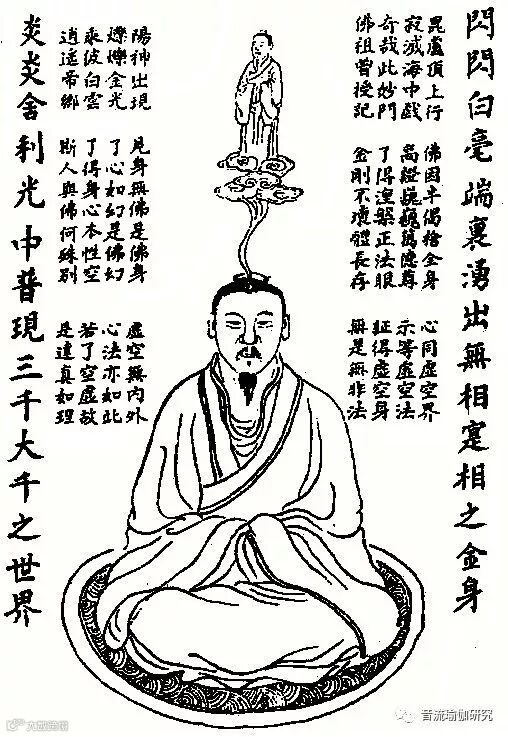 閃閃白毫端裏湧出無相寔相之金身
毘盧頂上行
寂滅海中戲
奇哉此妙門
佛祖曾授記
佛因半偈捨全身
高證巍巍萬德尊
了得涅槃正法眼
金剛不壞體長存
心同虛空界
示等虛空法
証得虛空
無是無非法
陽神出現
爍爍金光
乘彼白雲
逍遙帝鄉
見身無佛是佛身
了心如幻是佛幻
了得身心本性空
斯人與佛何殊別
虛空無內外
心法亦如此
若了空虛故
是達真如理
炎炎舍利光中普現三千大千之世界
音流瑜伽研究